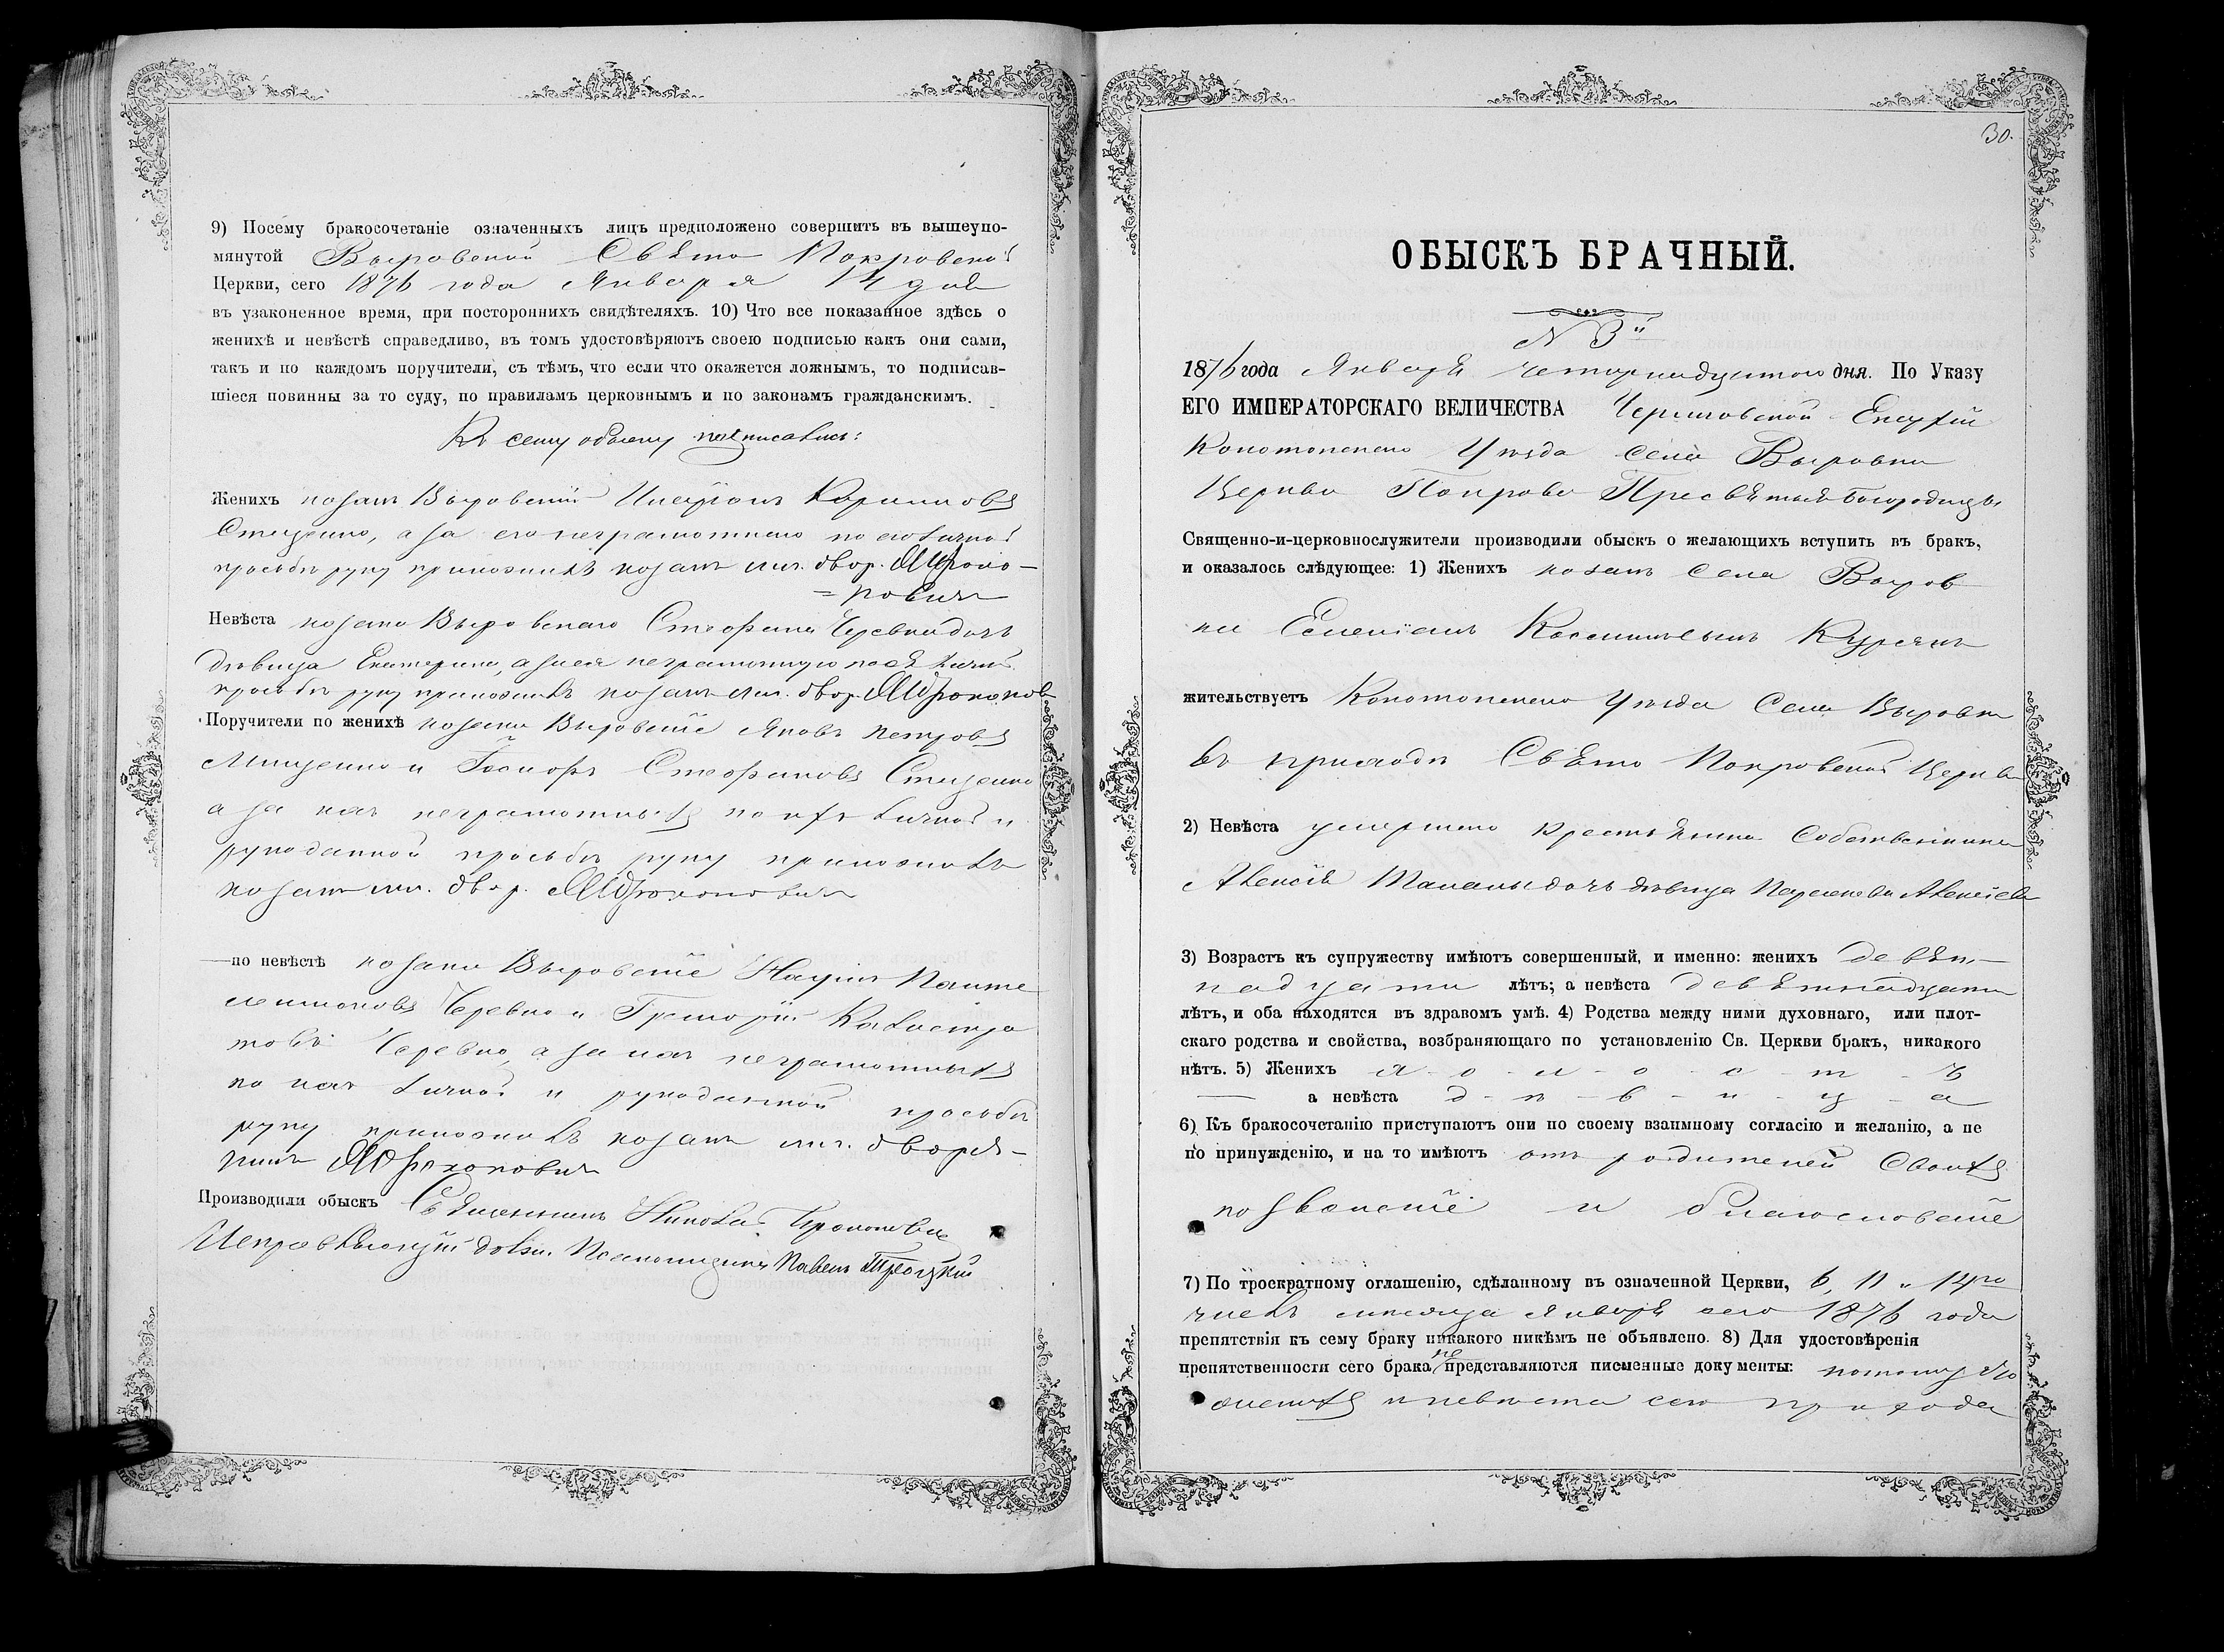 9) Посему бракосочетаніе означенныхъ лицъ предположено совершить въ вышеупо-
мянутой Выровской Свято Покровской
Церкви, сего 1876 года Января 14 дня
въ узаконенное время, при постороннихъ свидѣтеляхъ. 10) Что все показанное здѣсь о
женихѣ и невѣстѣ справедливо, въ томъ удостовѣряютъ своею подписью какъ они сами,
такъ и по каждомъ поручители, съ тѣмъ, что если что окажется ложнымъ, то подписав-
шіеся повинны за то суду, по правиламъ церковнымъ и по законамъ гражданскимъ.
Къ сему обыску подписались:
Женихъ козакъ Выровскій
Стеценко, а за его неграмотнаго по его личной
просьбѣ руку приложилъ козакъ двор.
Невѣста козака Выровскаго Стефана Черевка дочь
дѣвица Екатерина, а за нея неграмотную по ея личной
просьбѣ руку приложилъ козакъ двор.
Поручители по женихѣ козаки Выровскіе Яковъ Петровъ
Мищенко и Стефановъ Стеценко
а за нихъ неграмотныхъ по ихъ личной и
рукоданной просьбѣ руку приложилъ
козакъ двор.
—по невѣстѣ козаки Выровскіе Наумъ Панте
леимоновъ Черевко и Григорій Калистра
товъ Черевко, а за нихъ неграмотныхъ
по ихъ личной и рукоданной просьбѣ
руку приложилъ козакъ дворя-
нинъ
Производили обыскъ Священникъ Николай
Исправляющій должн. Псаломщика Павелъ Троицкій
30.
ОБЫСКЪ БРАЧНЫЙ.
N 3й
1876 года Января четырнадцатого дня. По Указу
ЕГО ИМПЕРАТОРСКАГО ВЕЛИЧЕСТВА Черниговской Епархіи
Конотопскаго Уѣзда села Выровки
Церкви Покрова Пресвятыя Богородицы
Священно-и-церковнослужители производили обыскъ о желающихъ вступить въ бракъ,
и оказалось слѣдующее: 1) Женихъ козакъ села Выров
ки Курякъ
жительствуетъ Конотопскаго Уѣзда Села Выровки
въ приходѣ Свято Покровской Церкви
2) Невѣста умершаго крестьянина Собственника
Алексія дочь дѣвица Алексіева
3) Возрастъ къ супружеству имѣютъ совершенный, и именно: женихъ девят-
надцати лѣтъ; а невѣста девятнадцати
лѣтъ, и оба находятся въ здравомъ умѣ. 4) Родства между ними духовнаго, или плот-
скаго родства и свойства, возбраняющаго по установленію Св. Церкви бракъ, никакого
нѣтъ. 5) Женихъ х - о - л - о - с - т - ъ
а невѣста д - ѣ - в - и - ц - а
6) Къ бракосочетанію приступаютъ они по своему взаимному согласію и желанію, а не
по принужденію, и на то имѣютъ отъ родителей своихъ
позволеніе и благословеніе
7) По троекратному оглашенію, сдѣланному въ означенной Церкви, 6, 11 и 14го
числъ мѣсяца Января сего 1876 года
препятствія къ сему браку никакого никѣмъ не объявлено. 8) Для удостовѣренія
препятственности сего брака не представляются писменные документы: потому что
женихъ и невѣста сего прихода